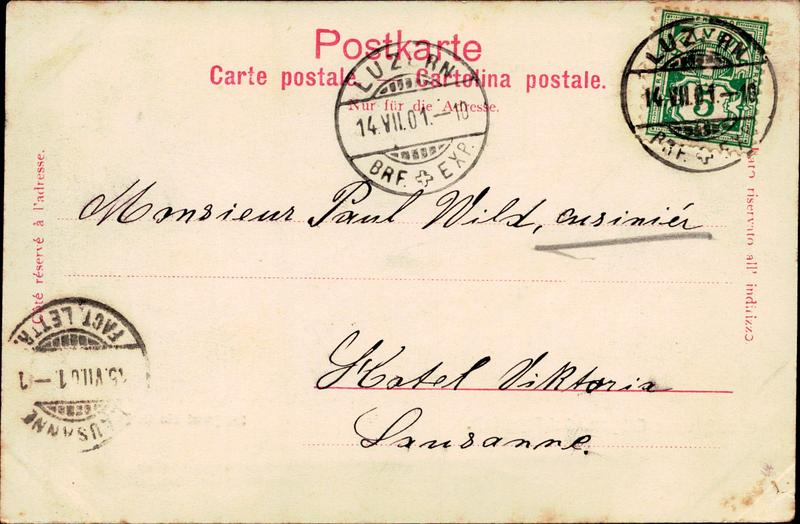 Postkarte
Carte postale. — Cartolina postale.
Nur für die Adresse.
LUZERN
14.VII.01.–10
BRF. EXP.
LUZERN
14.VII.01.–10
BRF. EX
5
Côté réservé à l'adresse.
Lato riservato all' indirizzo
Monsieur Paul Wild, cusiniér
FACT. LETTR.
15.VII.01.–1
LAUSANNE
Hotel Viktoria
Lausanne.